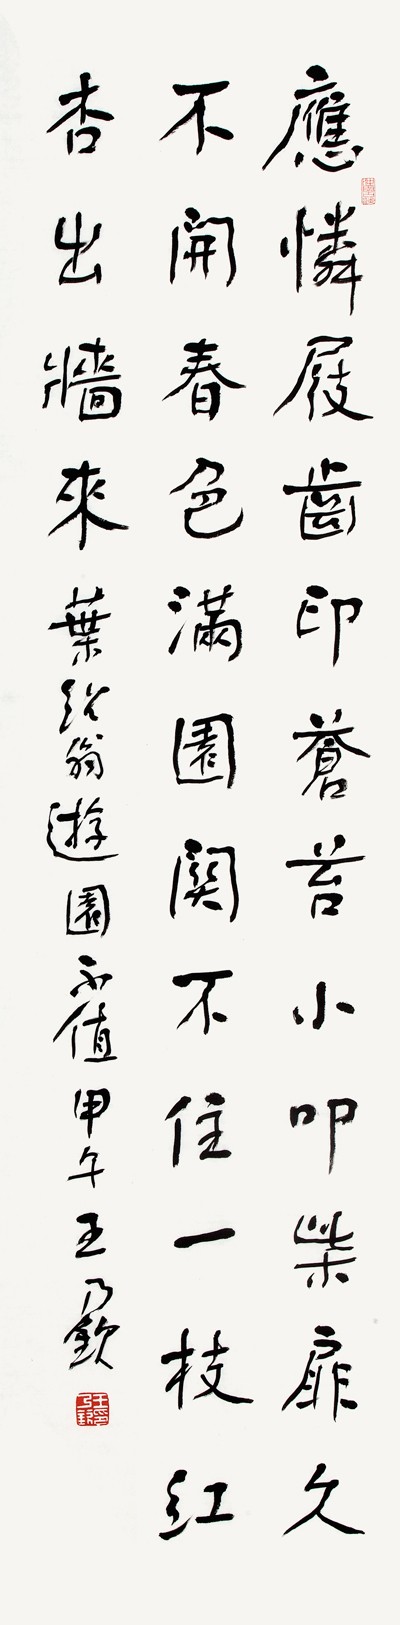 應憐屐齒印蒼苔小叩柴扉久
不開春色滿園関不住一枝紅
杏出牆來葉紹翁遊園不值甲午王乃欽